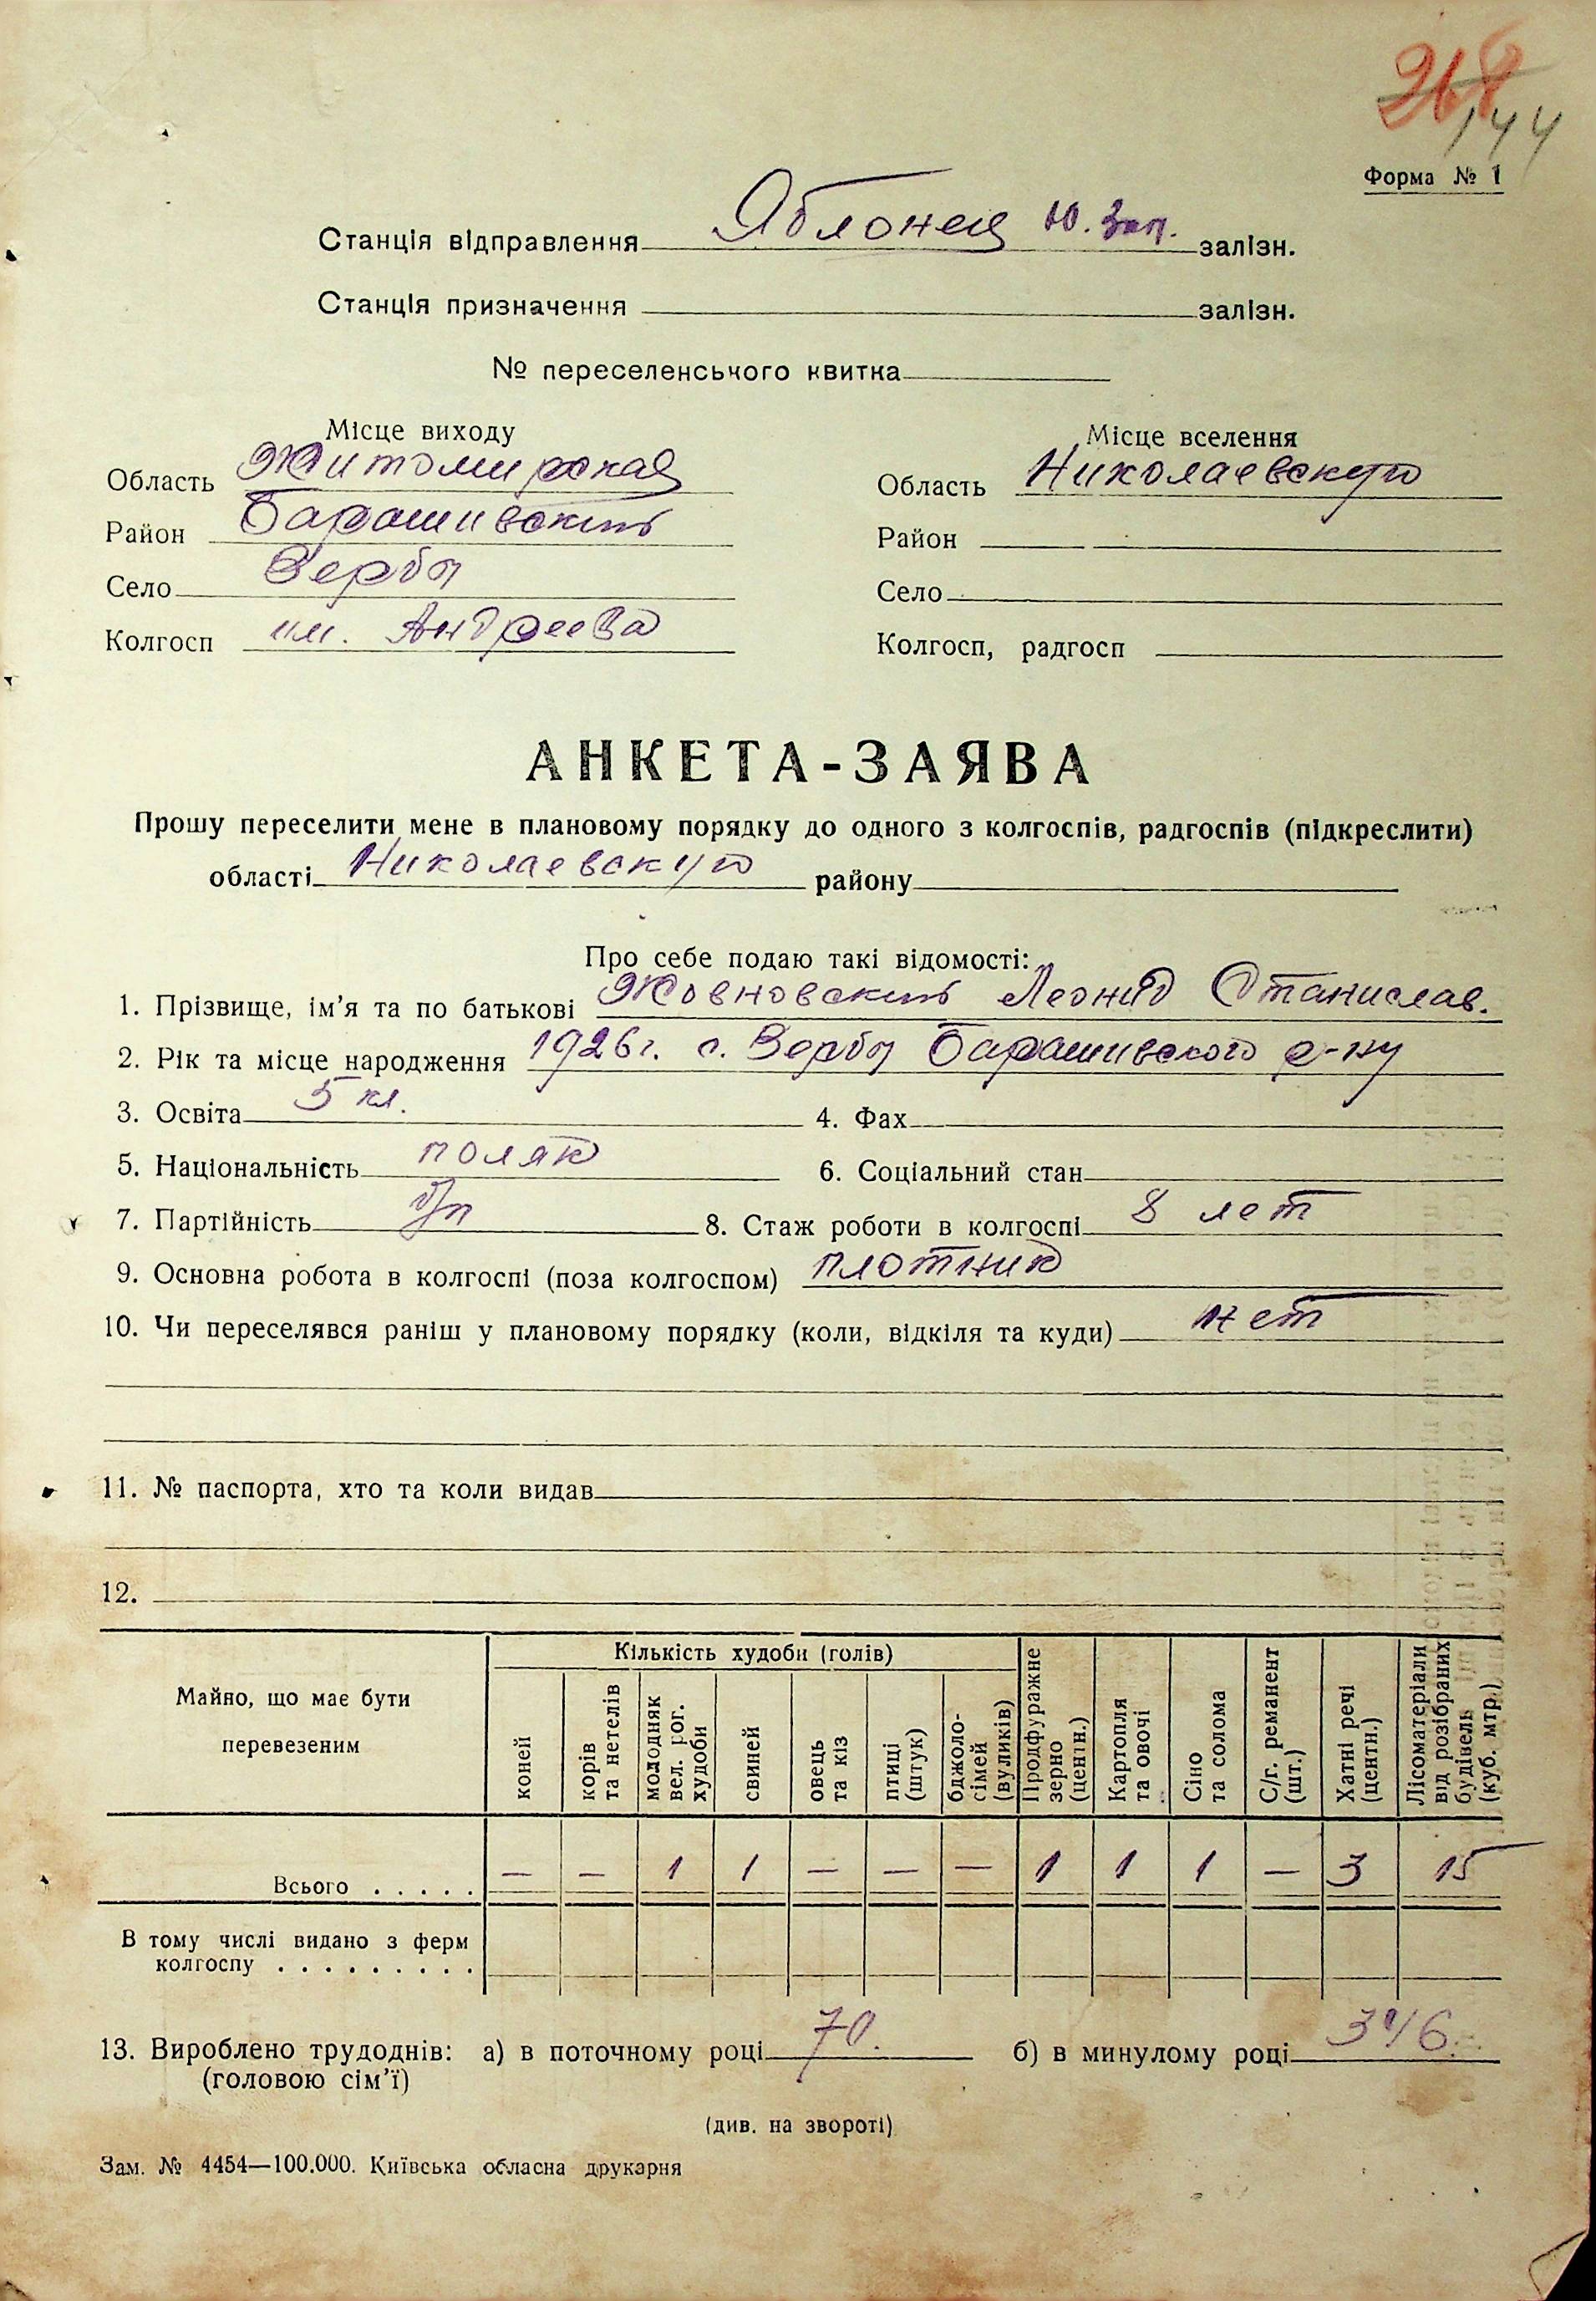 268
144
Форма № 1
Станція відправлення Яблонец Ю. Зап. залізн.
Станція призначення залізн.
№ переселенського квитка
Місце виходу
Область Житомирская
Район Барашивский
Село Вербы
Колгосп им. Андреева
Місце вселення
Область Николаевскую
Район
Село
Колгосп, радгосп
АНКЕТА-ЗАЯВА
Прошу переселити мене в плановому порядку до одного з колгоспів, радгоспів (підкреслити)
області Николаевскую району
Про себе подаю такі відомості:
1. Прізвище, ім'я та по батькові Жовновский Леонид Станислав.
2. Рік та місце народження 1926 г. с. Вербы Барашивского р-ну
3. Освіта 5 кл. 4. Фах
5. Національність поляк 6. Соціальний стан
7. Партійність б/п 8. Стаж роботи в колгоспі 8 лет
9. Основна робота в колгоспі (поза колгоспом) плотник
10. Чи переселявся раніш у плановому порядку (коли, відкіля та куди) нет
11. № паспорта, хто та коли видав
12.
Майно, що має бути перевезеним
Кількість худоби (голів)
коней
корів та нетелів
молодняк вел. рог. худоби
свиней
овець та кіз
птиці (штук)
бджоло-сімей (вуликів)
Продфуражне зерно (центн.)
Картопля та овочі
Сіно та солома
С/г. реманент (шт.)
Хатні речі (центн.)
Лісоматеріали від розібраних будівель (куб. мтр.)
Всього . . . . . — — 1 1 — — — 1 1 1 — 3 15
В тому числі видано з ферм
колгоспу . . . . . . . . .
13. Вироблено трудоднів: а) в поточному році 70. б) в минулому році 346.
(головою сім'ї)
(див. на звороті)
Зам. № 4454—100.000. Київська обласна друкарня